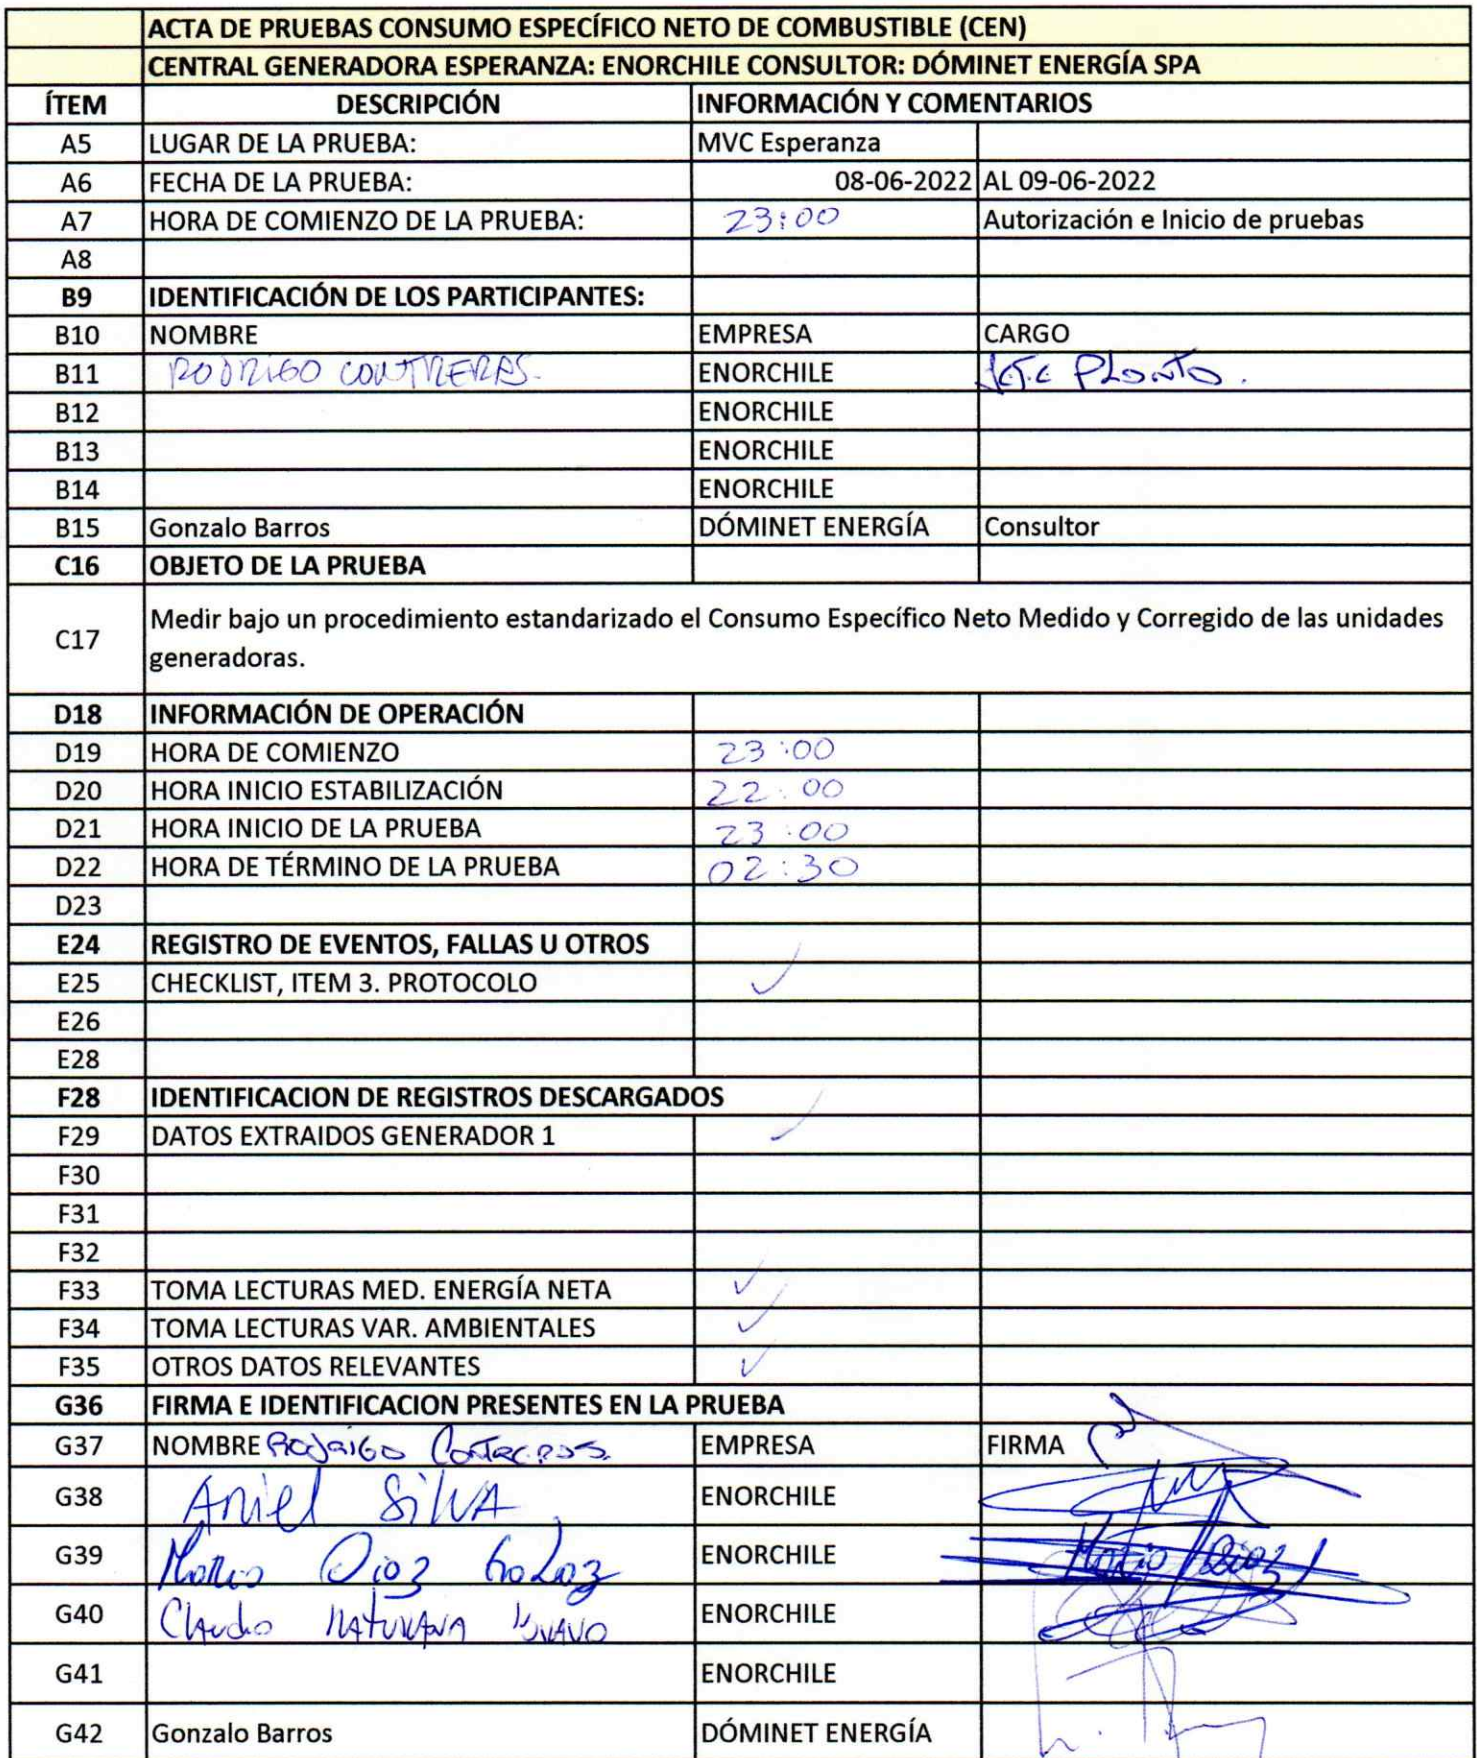 ACTA DE PRUEBAS CONSUMO ESPECÍFICO NETO DE COMBUSTIBLE (CEN)
CENTRAL GENERADORA ESPERANZA: ENORCHILE CONSULTOR: DÓMINET ENERGÍA SPA
ÍTEM DESCRIPCIÓN INFORMACIÓN Y COMENTARIOS
A5 LUGAR DE LA PRUEBA: MVC Esperanza
A6 FECHA DE LA PRUEBA: 08-06-2022 AL 09-06-2022
A7 HORA DE COMIENZO DE LA PRUEBA: 23:00 Autorización e Inicio de pruebas
A8
B9 IDENTIFICACIÓN DE LOS PARTICIPANTES:
B10 NOMBRE EMPRESA CARGO
B11 RODRIGO CONTRERAS. ENORCHILE Jefe Planta.
B12 ENORCHILE
B13 ENORCHILE
B14 ENORCHILE
B15 Gonzalo Barros DÓMINET ENERGÍA Consultor
C16 OBJETO DE LA PRUEBA
C17 Medir bajo un procedimiento estandarizado el Consumo Específico Neto Medido y Corregido de las unidades
generadoras.
D18 INFORMACIÓN DE OPERACIÓN
D19 HORA DE COMIENZO 23:00
D20 HORA INICIO ESTABILIZACIÓN 22:00
D21 HORA INICIO DE LA PRUEBA 23:00
D22 HORA DE TÉRMINO DE LA PRUEBA 02:30
D23
E24 REGISTRO DE EVENTOS, FALLAS U OTROS
E25 CHECKLIST, ITEM 3. PROTOCOLO ✓
E26
E28
F28 IDENTIFICACION DE REGISTROS DESCARGADOS
F29 DATOS EXTRAIDOS GENERADOR 1 ✓
F30
F31
F32
F33 TOMA LECTURAS MED. ENERGÍA NETA ✓
F34 TOMA LECTURAS VAR. AMBIENTALES ✓
F35 OTROS DATOS RELEVANTES ✓
G36 FIRMA E IDENTIFICACION PRESENTES EN LA PRUEBA
G37 NOMBRE Rodrigo Contreras. EMPRESA FIRMA
G38 Aniel SilVA ENORCHILE
G39 Mario Díaz ENORCHILE Mario Díaz
G40 Claudio MATURANA BRAVO ENORCHILE
G41 ENORCHILE
G42 Gonzalo Barros DÓMINET ENERGÍA